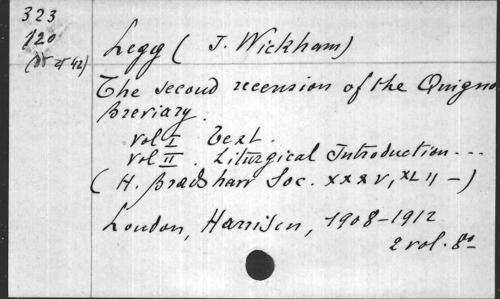 323
120
Legg ( J. Wickham)
The second recension of the Quigno
Breviary.
vol I Text.
vol II. Liturgical Introduction...
( H. Bradshaw Soc. XXXV, XLII -)
London, Harrison, 1908-1912
2 vol. 8º